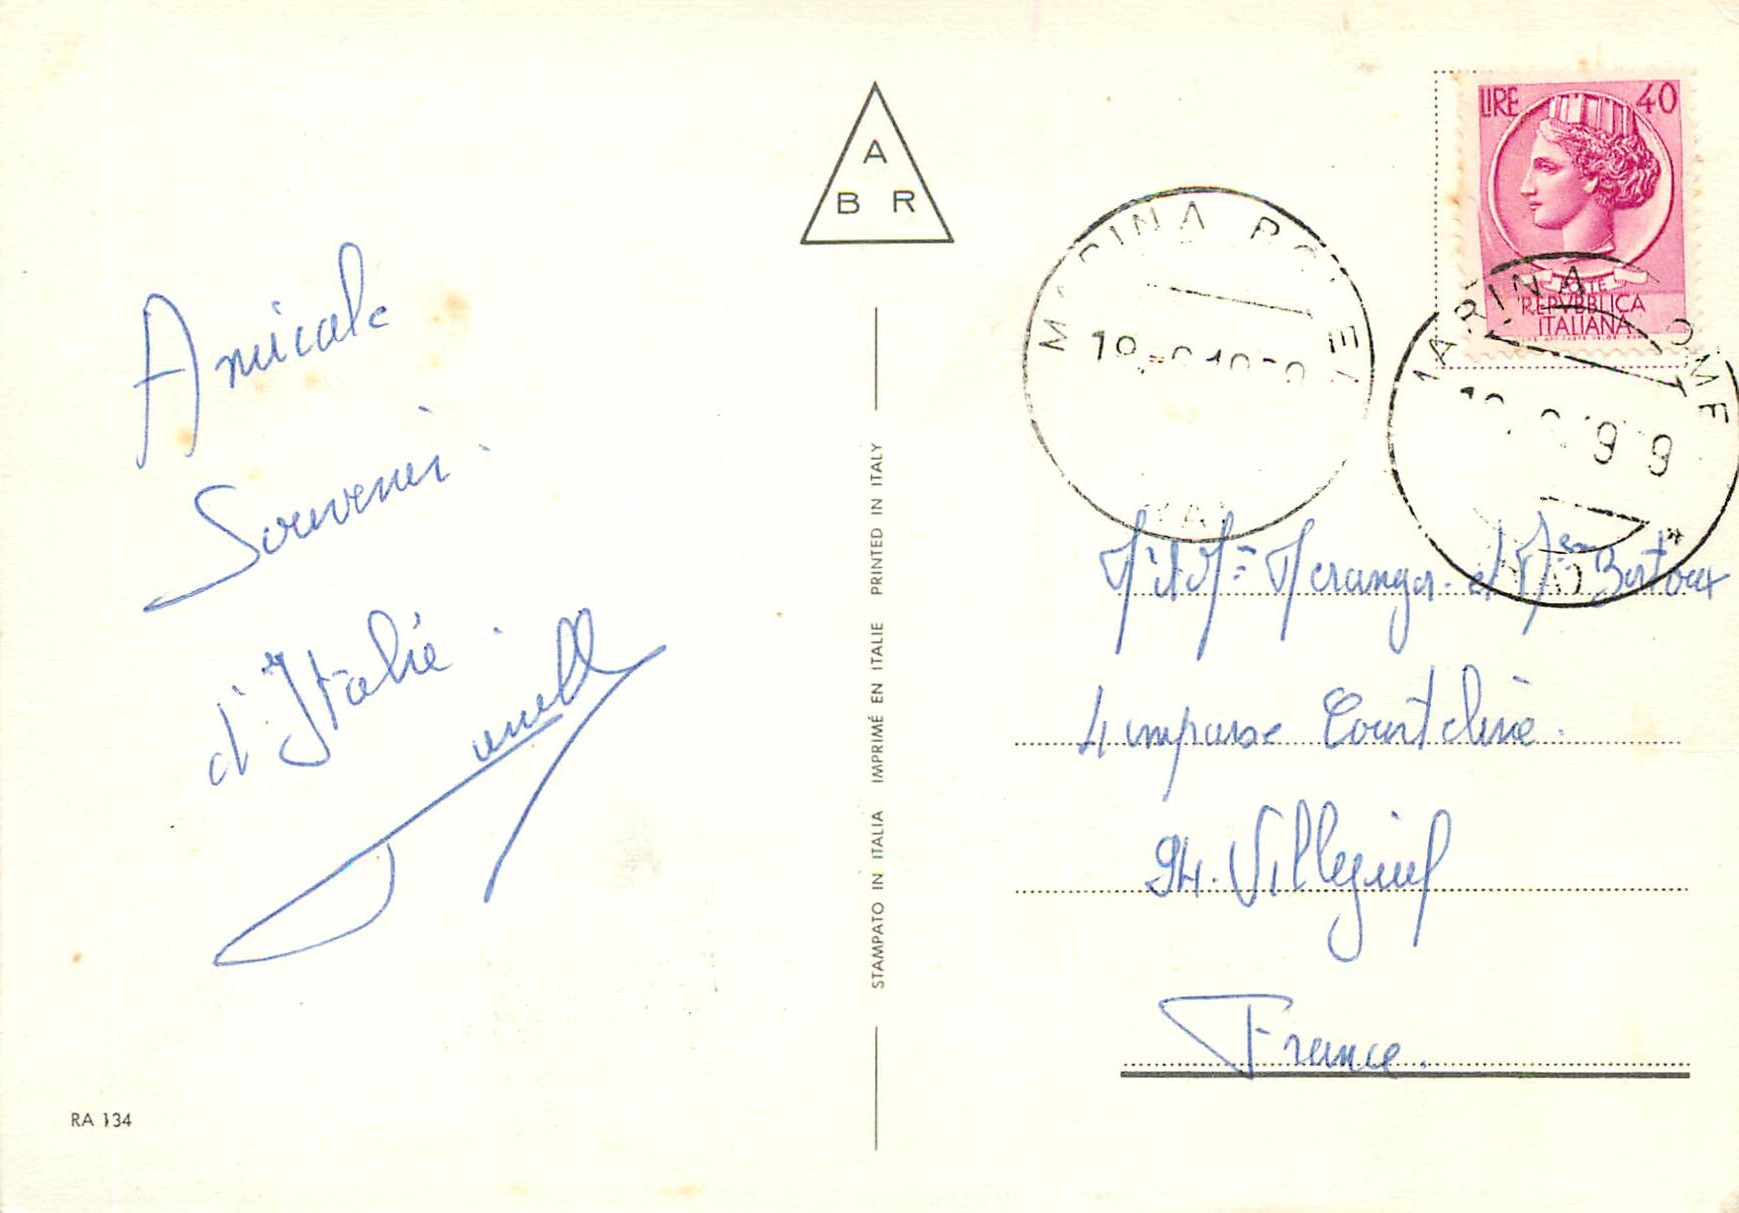 A
B R
LIRE 40
POSTE
REPVBBLICA
ITALIANA
MARINA
Amicale
Souvenir.
d'Italie.
STAMPATO IN ITALIA IMPRIMÉ EN ITALIE PRINTED IN ITALY
M et Mme Meranger et Bertoux
4 impasse Courteline.
94. Villejuif
France.
RA 134